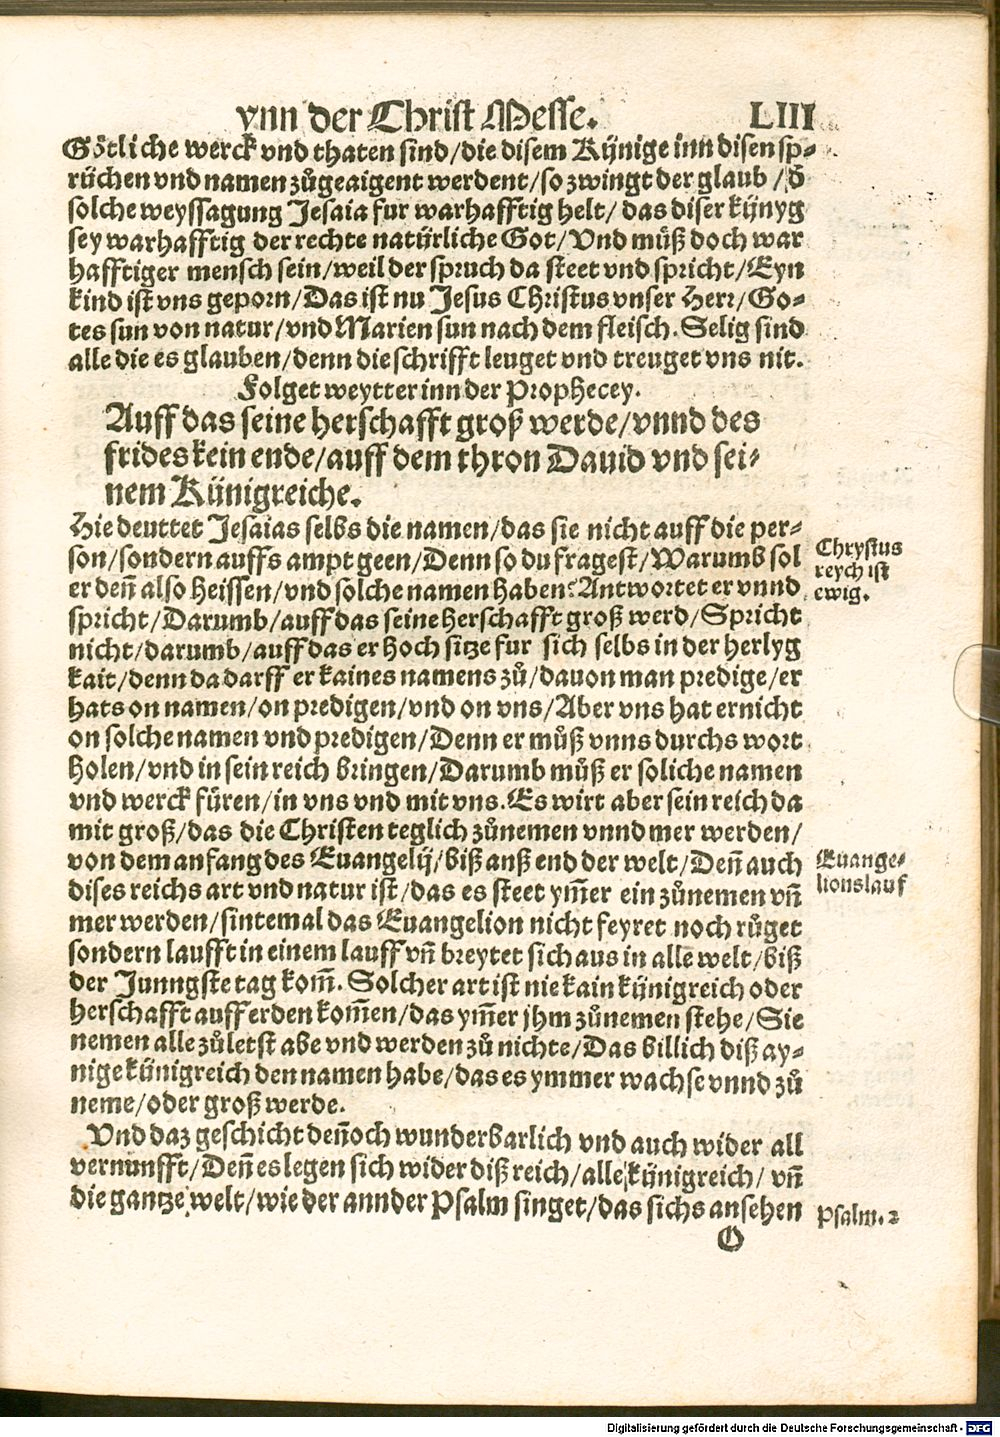 vnn der Christ Messe. LIII
Götliche werck vnd thaten sind/die disem Künige inn disen sp⸗
rüchen vnd namen zůgeaigent werdent/so zwingt der glaub /d̕
solche weyssagung Jesaia fur warhafftig helt/ das diser künyg
sey warhafftig der rechte natürliche Got/Vnd můß doch war
hafftiger mensch sein/weil der spruch da steet vnd spricht/Eyn
kind ist vns geporn/Das ist nu Jesus Christus vnser Herr/Go⸗
tes sun von natur/vnd Marien sun nach dem fleisch. Selig sind
alle die es glauben/denn die schrifft leuget vnd treuget vns nit.
Folget weytter inn der Prophecey.
Auff das seine herschafft groß werde/vnnd des
frides kein ende/auff dem thron Dauid vnd sei⸗
nem Künigreiche.
Hie deuttet Jesaias selbs die namen/das sie nicht auff die per⸗
son/sondern auffs ampt geen/Denn so du fragest/Warumb sol
er deñ also heissen/vnd solche namen haben? Antwortet er vnnd
spricht/Darumb/auff das seine herschafft groß werd/Spricht
nicht/darumb/auff das er hoch sitze fur sich selbs in der herlyg
kait/denn da darff er kaines namens zů/dauon man predige/er
hats on namen/on predigen/vnd on vns/Aber vns hat er nicht
on solche namen vnd predigen/Denn er můß vnns durchs wort
holen/vnd in sein reich bringen/Darumb můß er soliche namen
vnd werck füren/in vns vnd mit vns. Es wirt aber sein reich da
mit groß/das die Christen teglich zůnemen vnnd mer werden/
von dem anfang des Euangelij/biß anß end der welt/Deñ auch
dises reichs art vnd natur ist/das es steet ym̃er ein zůnemen vñ
mer werden/sintemal das Euangelion nicht feyret noch růget
sondern laufft in einem lauff vñ breytet sich aus in alle welt/biß
der Junngste tag kom̃. Solcher art ist nie kain künigreich oder
herschafft auff erden kom̃en/das ym̃er jhm zůnemen stehe/Sie
nemen alle zůletst abe vnd werden zů nichte/Das billich diß ay⸗
nige künigreich den namen habe/das es ymmer wachse vnnd zů
neme/oder groß werde.
Vnd daz geschicht deñoch wunderbarlich vnd auch wider all
vernunfft/Deñ es legen sich wider diß reich/alle künigreich/ vñ
die gantze welt/wie der annder Psalm singet/das sichs ansehen
O
Chrystus
reych ist
ewig.
Euange⸗
lions lauf
Psalm. 2
Digitalisierung gefördert durch die Deutsche Forschungsgemeinschaft - DFG